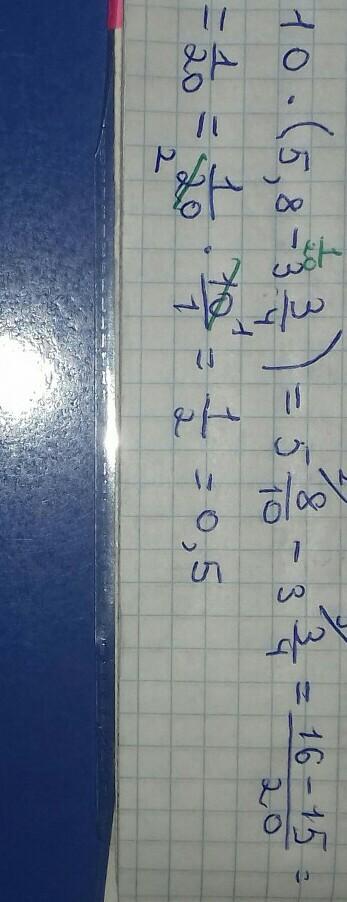 10 · (5,8 - 3 3/4) = 5 8/10 - 3 3/4 = 16 - 15/20 =
= 1/20 = 1/20 · 10/1 = 1/2 = 0,5